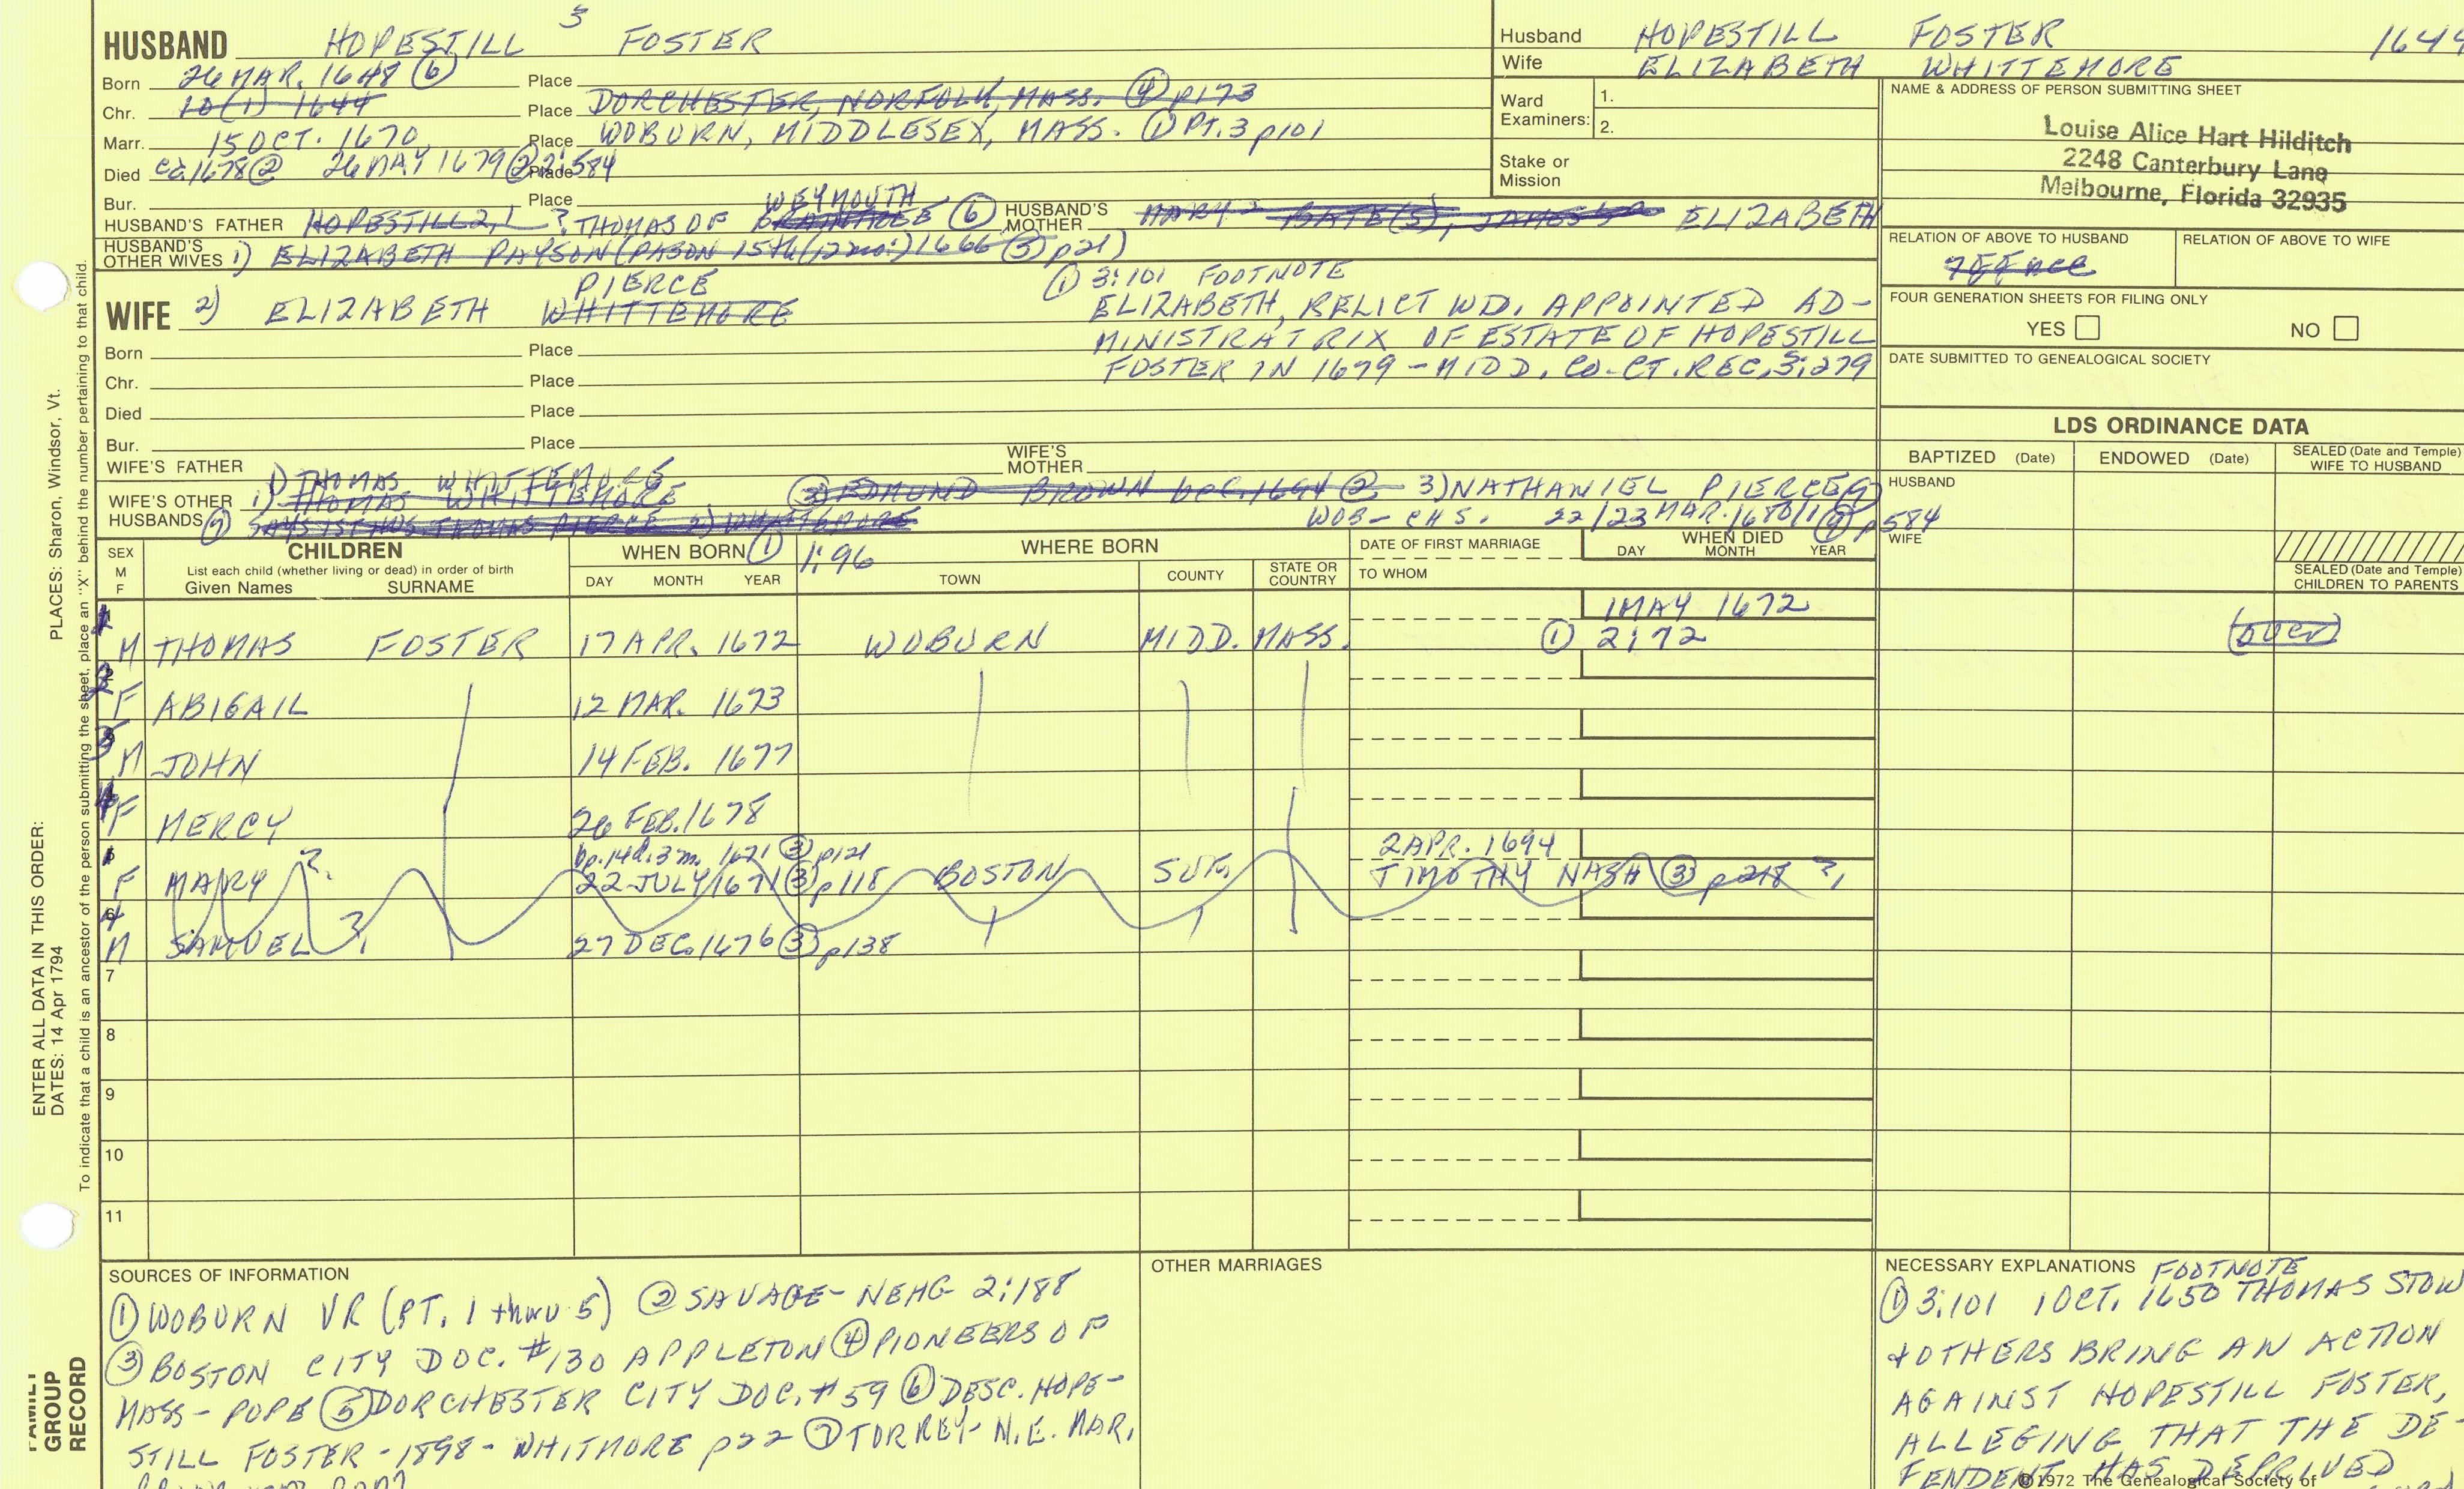 3
HUSBAND HOPESTILL FOSTER
Born 26 MAR. 1648 (6) Place
Chr. 10 (1) 1644 Place DORCHESTER, NORFOLK, MASS. (4) p173
Marr. 15 OCT. 1670 Place WOBURN, MIDDLESEX, MASS. (1) PT. 3 p101
Died ca. 1678 (2) 26 MAY 1679 (2) 2:584 Place
Bur. Place
WEYMOUTH
HUSBAND'S FATHER HOPESTILL 2,1 ? THOMAS OF BRAINTREE (6) HUSBAND'S MOTHER MARY 2 BATE(S), JAMES ELIZABETH
HUSBAND'S OTHER WIVES 1) ELIZABETH PAYSON (PASON 15th (12 mo.) 1666 (5) p21)
PIERCE
WIFE 2) ELIZABETH WHITTEMORE
(1) 3:101 FOOTNOTE
ELIZABETH, RELICT WD. APPOINTED AD-
MINISTRATRIX OF ESTATE OF HOPESTILL
FOSTER IN 1679 - MIDD. CO. CT. REC, 3:279
Born Place
Chr. Place
Died Place
Bur. Place
WIFE'S FATHER WIFE'S MOTHER
1) THOMAS WHITTEMORE
WIFE'S OTHER HUSBANDS 1) THOMAS WHITTEMORE (3) EDMUND BROWN bef. 1694 (2) - 3) NATHANIEL PIERCE (7)
(7) SAYS 1ST HUS THOMAS PIERCE 2) WHITTEMORE WOB - CHS. 22/23 MAR. 1680/1 (7) p584
Husband HOPESTILL FOSTER 1644
Wife ELIZABETH WHITTEMORE
Ward Examiners: 1.
2.
Stake or Mission
NAME & ADDRESS OF PERSON SUBMITTING SHEET
Louise Alice Hart Hilditch
2248 Canterbury Lane
Melbourne, Florida 32935
RELATION OF ABOVE TO HUSBAND RELATION OF ABOVE TO WIFE
FOUR GENERATION SHEETS FOR FILING ONLY
YES NO
DATE SUBMITTED TO GENEALOGICAL SOCIETY
LDS ORDINANCE DATA
BAPTIZED (Date) ENDOWED (Date) SEALED (Date and Temple) WIFE TO HUSBAND
HUSBAND
WIFE
SEALED (Date and Temple) CHILDREN TO PARENTS
SEX M F CHILDREN
List each child (whether living or dead) in order of birth
Given Names SURNAME
WHEN BORN (1) 1:96
DAY MONTH YEAR
WHERE BORN
TOWN COUNTY STATE OR COUNTRY
DATE OF FIRST MARRIAGE
TO WHOM
WHEN DIED
DAY MONTH YEAR
1 MAY 1672
1 M THOMAS FOSTER 17 APR. 1672 WOBURN MIDD. MASS. (1) 2:72 (over)
2 F ABIGAIL 12 MAR. 1673
3 M JOHN 14 FEB. 1677
4 F MERCY 26 FEB. 1678
bp. 14d. 3m. 1671 (3) p121 2 APR. 1694
F MARY ? 22 JULY 1671 (3) p118 BOSTON SUF. TIMOTHY NASH (3) p218 ?
M SAMUEL ? 27 DEC. 1676 (3) p138
7
8
9
10
11
SOURCES OF INFORMATION
(1) WOBURN VR (PT. 1 thru 5) (2) SAVAGE - NEHG 2:188
(3) BOSTON CITY DOC. #130 APPLETON (4) PIONEERS OF
MASS - POPE (5) DORCHESTER CITY DOC. #59 (6) DESC. HOPE-
STILL FOSTER - 1898 - WHITMORE p22 (7) TORREY - N.E. MAR.
OTHER MARRIAGES
NECESSARY EXPLANATIONS FOOTNOTE
(1) 3:101 1 OCT. 1650 THOMAS STOW
& OTHERS BRING AN ACTION
AGAINST HOPESTILL FOSTER,
ALLEGING THAT THE DE-
FENDENT HAS DEPRIVED
©1972 The Genealogical Society of
ENTER ALL DATA IN THIS ORDER:
DATES: 14 Apr 1794 PLACES: Sharon, Windsor, Vt.
To indicate that a child is an ancestor of the person submitting the sheet, place an "X" behind the number pertaining to that child.
FAMILY GROUP RECORD